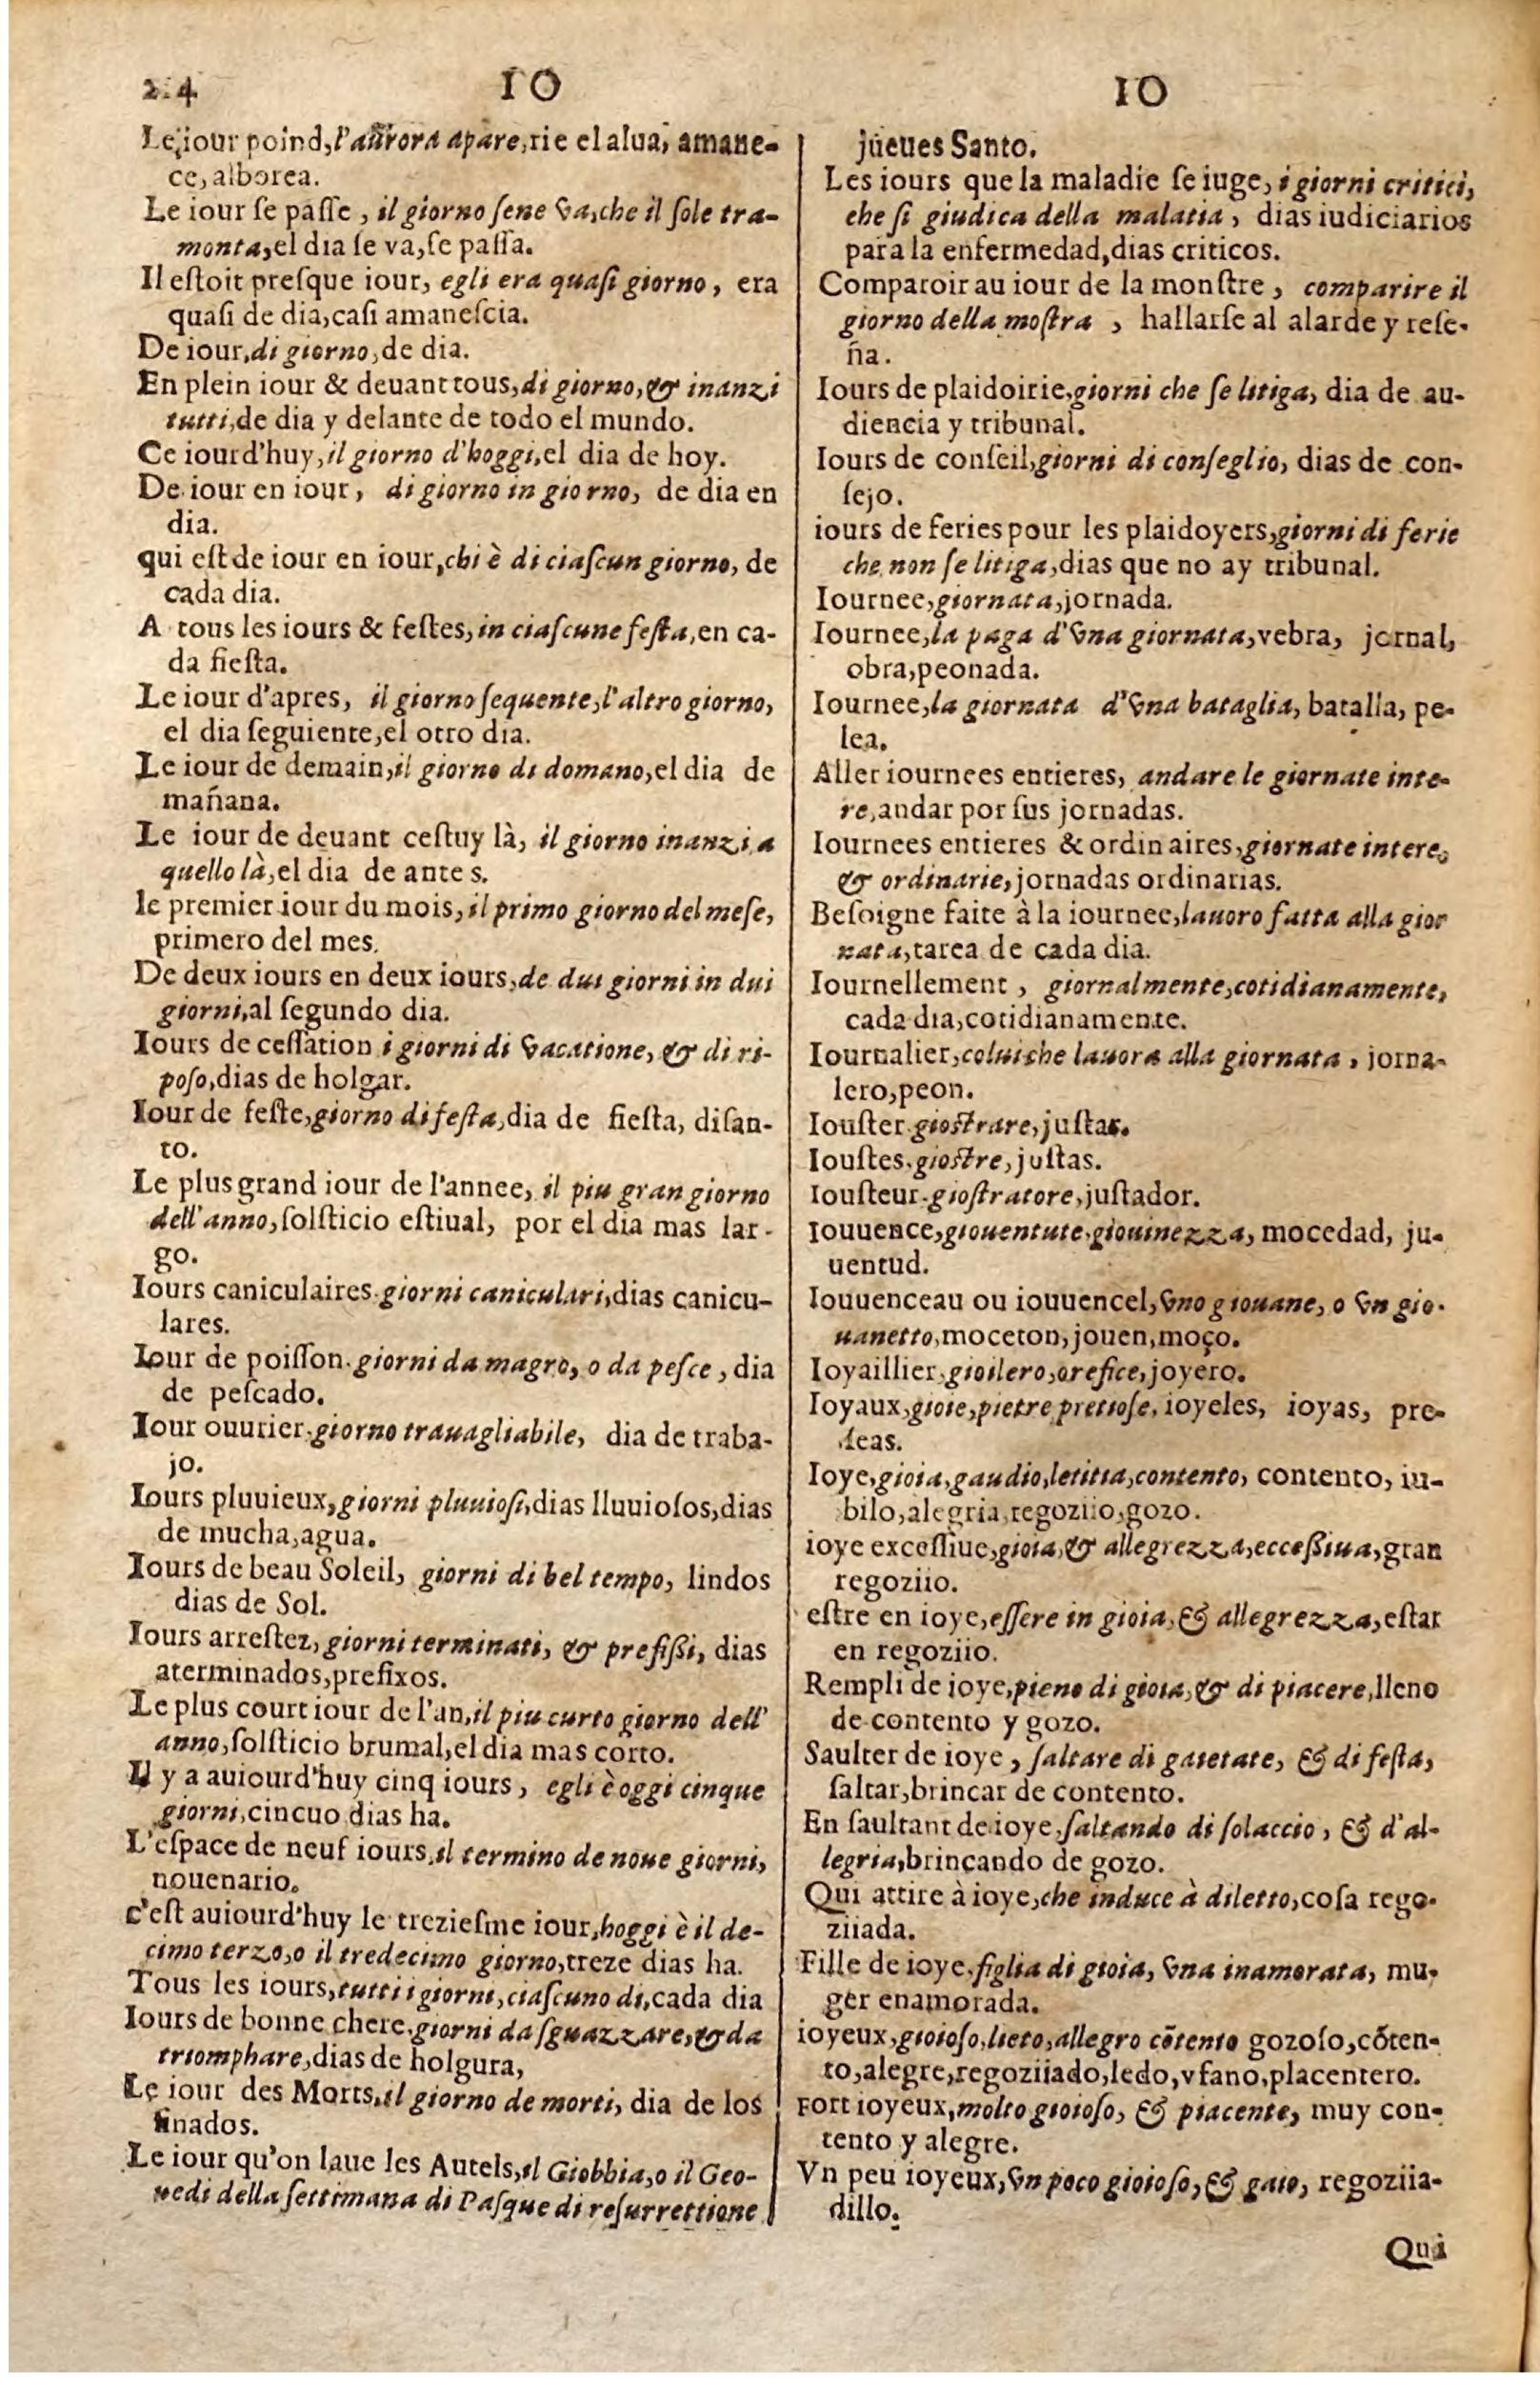 2.4 IO IO
Le iour poind, l'aurora apare, rie el alua, amane-
ce, alborea.
Le iour ſe paſſe, il giorno ſene va, che il ſole tra-
monta, el dia ſe va, ſe paſſa.
Il eſtoit preſque iour, egli era quaſi giorno, era
quaſi de dia, caſi amaneſcia.
De iour, di giorno, de dia.
En plein iour & deuant tous, di giorno, & inanzi
tutti, de dia y delante de todo el mundo.
Ce iourd'huy, il giorno d'hoggi, el dia de hoy.
De iour en iour, di giorno in giorno, de dia en
dia.
qui eſt de iour en iour, chi è di ciaſcun giorno, de
cada dia.
A tous les iours & feſtes, in ciaſcune feſta, en ca-
da fieſta.
Le iour d'apres, il giorno ſequente, l'altro giorno,
el dia ſeguiente, el otro dia.
Le iour de demain, il giorno di domano, el dia de
mañana.
Le iour de deuant ceſtuy là, il giorno inanzi a
quello là, el dia de ante s.
le premier iour du mois, il primo giorno del meſe,
primero del mes.
De deux iours en deux iours, de dui giorni in dui
giorni, al ſegundo dia.
Iours de ceſſation i giorni di vacatione, & di ri-
poſo, dias de holgar.
Iour de feſte, giorno di feſta, dia de fieſta, diſan-
to.
Le plus grand iour de l'annee, il piu gran giorno
dell'anno, ſolſticio eſtiual, por el dia mas lar-
go.
Iours caniculaires. giorni caniculari, dias canicu-
lares.
Iour de poiſſon. giorni da magro, o da peſce, dia
de peſcado.
Iour ouurier. giorno trauagliabile, dia de traba-
jo.
Iours pluuieux, giorni pluuioſi, dias lluuioſos, dias
de mucha, agua.
Iours de beau Soleil, giorni di bel tempo, lindos
dias de Sol.
Iours arreſtez, giorni terminati, & prefißi, dias
aterminados, prefixos.
Le plus court iour de l'an, il piu curto giorno dell'
anno, ſolſticio brumal, el dia mas corto.
Il y a auiourd'huy cinq iours, egli è oggi cinque
giorni, cincuo dias ha.
L'eſpace de neuf iours, il termino de noue giorni,
nouenario.
c'eſt auiourd'huy le trezieſme iour, hoggi è il de-
cimo terzo, o il tredecimo giorno, treze dias ha.
Tous les iours, tutti i giorni, ciaſcuno di, cada dia
Iours de bonne chere. giorni da ſguazzare, & da
triomphare, dias de holgura,
Le iour des Morts, il giorno de morti, dia de los
finados.
Le iour qu'on laue les Autels, il Giobbia, o il Geo-
uedi della ſettimana di Paſque di reſurrettione
jueues Santo.
Les iours que la maladie ſe iuge, i giorni critici,
che ſi giudica della malatia, dias iudiciarios
para la enfermedad, dias criticos.
Comparoir au iour de la monſtre, comparire il
giorno della moſtra, hallarſe al alarde y reſe-
ña.
Iours de plaidoirie, giorni che ſe litiga, dia de au-
diencia y tribunal.
Iours de conſeil, giorni di conſeglio, dias de con-
ſejo.
iours de feries pour les plaidoyers, giorni di ferie
che non ſe litiga, dias que no ay tribunal.
Iournee, giornata, jornada.
Iournee, la paga d'vna giornata, vebra, jornal,
obra, peonada.
Iournee, la giornata d'vna bataglia, batalla, pe-
lea.
Aller iournees entieres, andare le giornate inte-
re, andar por ſus jornadas.
Iournees entieres & ordinaires, giornate intere,
& ordinarie, jornadas ordinarias.
Beſoigne faite à la iournee, lauoro fatta alla gior
nata, tarea de cada dia.
Iournellement, giornalmente, cotidianamente,
cada dia, cotidianamente.
Iournalier, colui che lauora alla giornata, jorna-
lero, peon.
Iouſter. gioſtrare, juſtar.
Iouſtes. gioſtre, juſtas.
Iouſteur. gioſtratore, juſtador.
Iouuence, giouentute. giouinezza, mocedad, ju-
uentud.
Iouuenceau ou iouuencel, vno giouane, o vn gio-
uanetto, moceton, jouen, moço.
Ioyaillier, gioilero, orefice, joyero.
Ioyaux, gioie, pietre pretioſe, ioyeles, ioyas, pre-
ſeas.
Ioye, gioia, gaudio, letitia, contento, contento, iu-
bilo, alegria, regoziio, gozo.
ioye exceſſiue, gioia, & allegrezza, ecceßiua, gran
regoziio.
eſtre en ioye, eſſere in gioia, & allegrezza, eſtar
en regoziio.
Rempli de ioye, pieno di gioia, & di piacere, lleno
de contento y gozo.
Saulter de ioye, ſaltare di gaietate, & di feſta,
ſaltar, brincar de contento.
En ſaultant de ioye, ſaltando di ſolaccio, & d'al-
legria, brincando de gozo.
Qui attire à ioye, che induce à diletto, coſa rego-
ziiada.
Fille de ioye, figlia di gioia, vna inamorata, mu-
ger enamorada.
ioyeux, gioioſo, lieto, allegro cõtento gozoſo, cõten-
to, alegre, regoziiado, ledo, vfano, placentero.
Fort ioyeux, molto gioioſo, & piacente, muy con-
tento y alegre.
Vn peu ioyeux, vn poco gioioſo, & gaio, regoziia-
dillo.
Qui